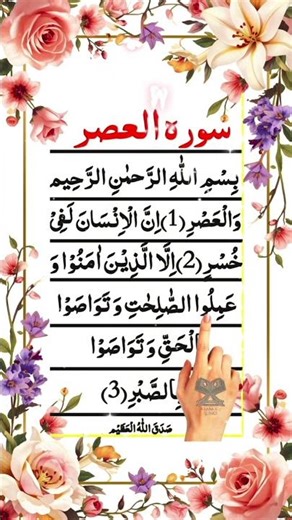 سورة العصر
بِسْمِ اللّٰهِ الرَّحْمٰنِ الرَّحِيْمِ
وَالْعَصْرِ (1) اِنَّ الْاِنْسَانَ لَفِيْ
خُسْرٍ (2) اِلَّا الَّذِيْنَ اٰمَنُوْا وَ
عَمِلُوا الصّٰلِحٰتِ وَ تَوَاصَوْا
الْحَقِّ وَ تَوَاصَوْا
بِالصَّبْرِ (3)
صَدَقَ اللّٰهُ الْعَظِيْم